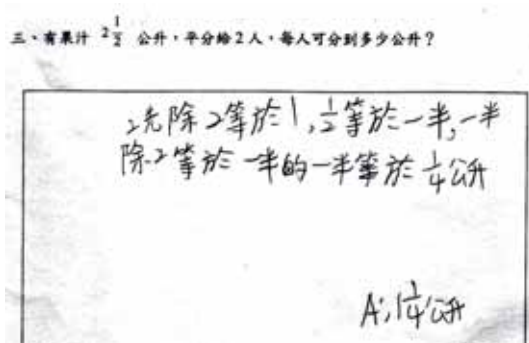 三、有果汁 2 1/2 公升，平分給2人，每人可分到多少公升？
2先除2等於1,1/2等於一半,一半
除2等於一半的一半等於1/4公升
A:1 1/4公升